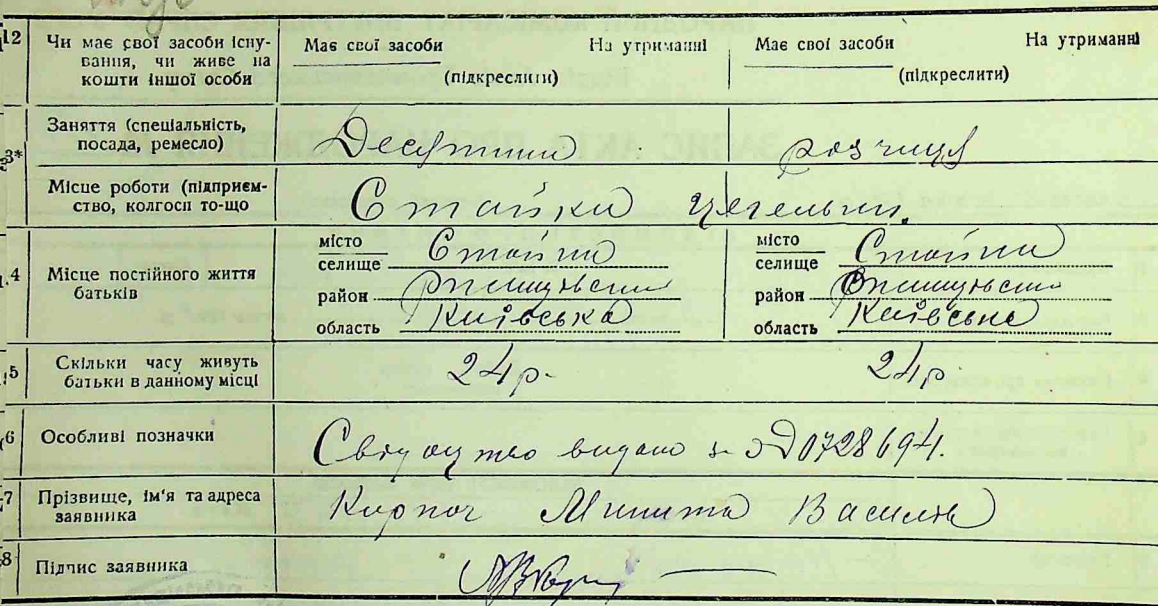 12 Чи має свої засоби існу-
вання, чи живе на
кошти іншої особи
Має свої засоби На утриманні
(підкреслити)
Має свої засоби На утриманні
(підкреслити)
3* Заняття (спеціальність,
посада, ремесло)
Десятник
Місце роботи (підприєм-
ство, колгосп то-що
Стайки цегельня
4 Місце постійного життя
батьків
місто
селище Стайки
район
область Київська
місто
селище Стайки
район
область Київська
5 Скільки часу живуть
батьки в данному місці
24 р.
24 р.
6 Особливі позначки
Свідоцтво видано за № 0728694.
7 Прізвище, ім'я та адреса
заявника
Микита Василів
8 Підпис заявника